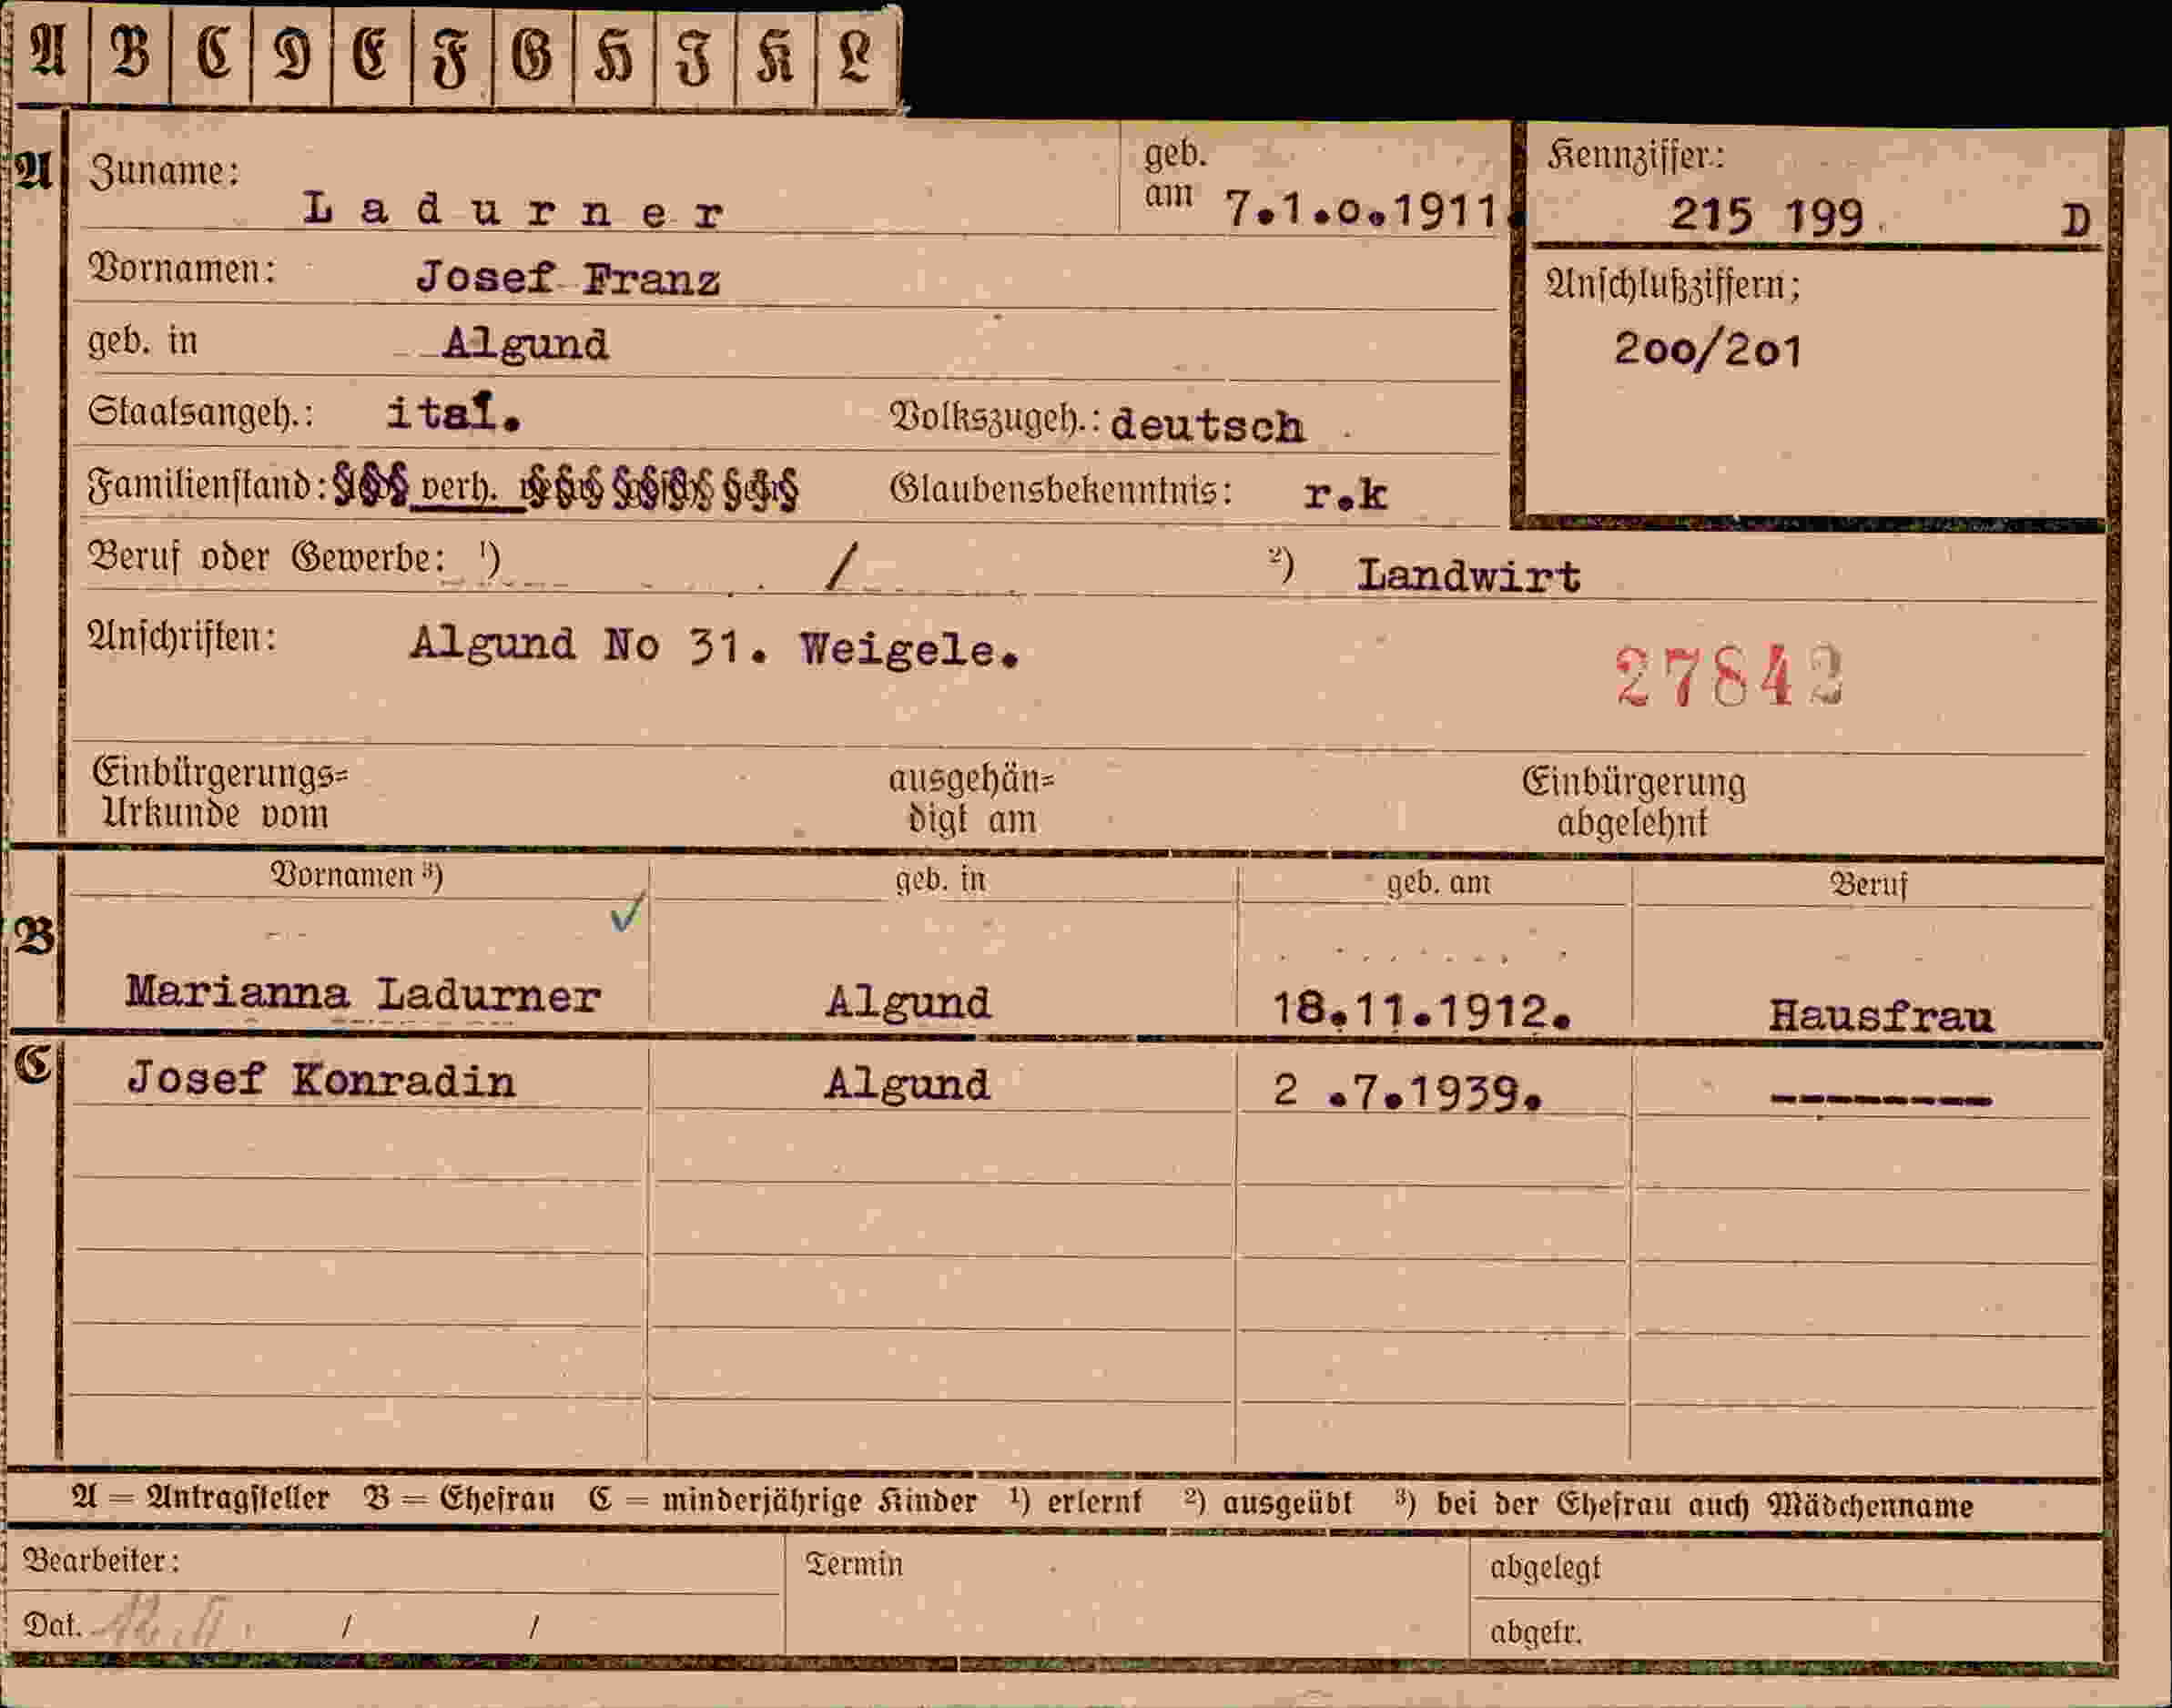 A B C D E F G H I K L
A Zuname: Ladurner geb. am 7.1.o.1911. Kennziffer: 215 199 D
Vornamen: Josef Franz Anschlußziffern:
geb. in Algund 2oo/2o1
Staatsangeh.: ital. Volkszugeh.: deutsch
Familienstand: verh. Glaubensbekenntnis: r.k
Beruf oder Gewerbe: 1) / 2) Landwirt
Anschriften: Algund No 31. Weigele.
27842
Einbürgerungs= ausgehän= Einbürgerung
Urkunde vom digt am abgelehnt
Vornamen 3) geb. in geb. am Beruf
B ✓
Marianna Ladurner Algund 18.11.1912. Hausfrau
C Josef Konradin Algund 2 .7.1939. --------
A = Antragsteller B = Ehefrau C = minderjährige Kinder 1) erlernt 2) ausgeübt 3) bei der Ehefrau auch Mädchenname
Bearbeiter: Termin abgelegt
Dat. / / abgetr.